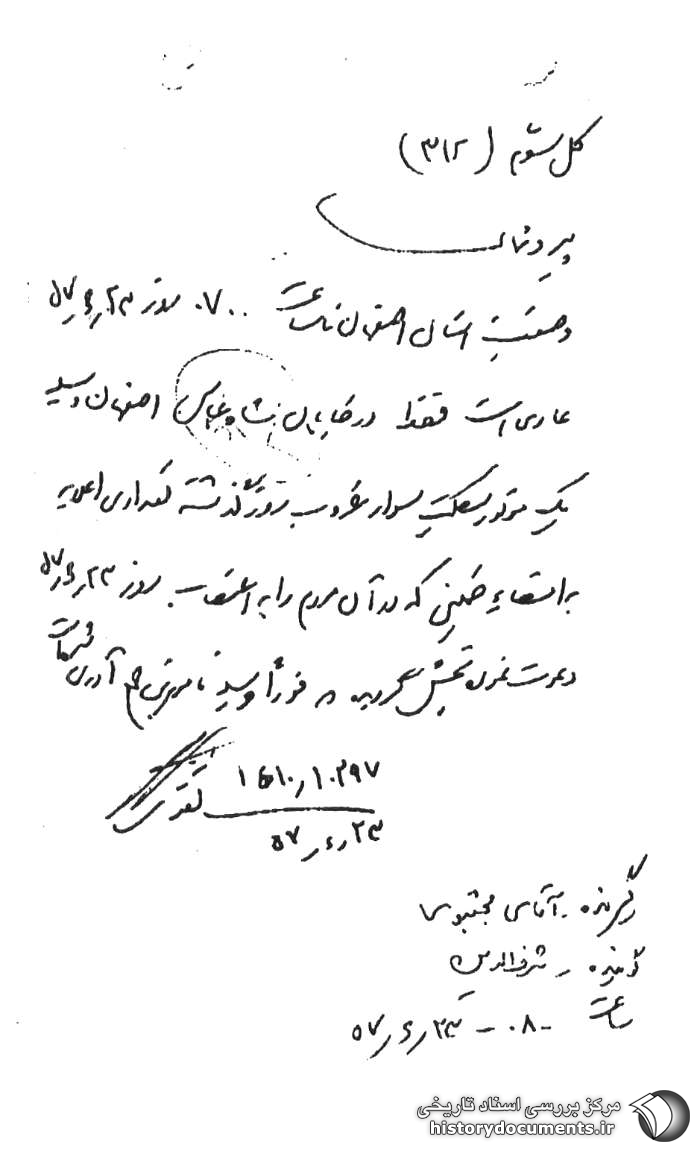 کل سوم (۳۱۲)
پیرو تهران
وضعیت استان اصفهان تا ساعت ۰۷۰۰ روز ۵۷٫۶٫۲۳
عادی است فقط در خیابان شاه عباس اصفهان وسیله
یک موتور سیکلت سوار غروب روز گذشته تعدادی اعلامیه
به امضاء خمینی که در آن مردم را به اعتصاب روز ۵۷٫۶٫۲۳
دعوت نموده پخش گردیده و فوراً وسیله مامورین جمع آوری شده است
۱۰۳۹۷
۵۷٫۶٫۲۳
گیرنده - آقای مجتبوی
گوینده - شرف الدین
ساعت ۰۸۰۰ - ۵۷٫۶٫۲۳
مرکز بررسی اسناد تاریخی
historydocuments.ir